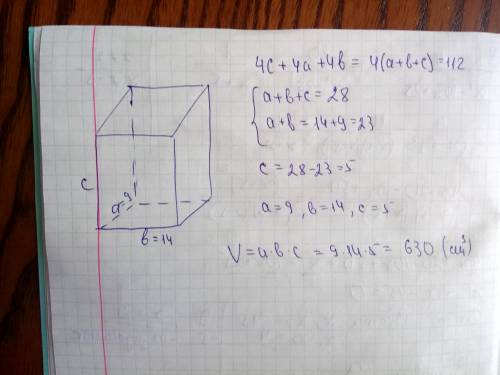 4c + 4a + 4b = 4(a+b+c) = 112
a+b+c = 28
a+b = 14+9 = 23
c = 28-23 = 5
a = 9, b = 14, c = 5
V = a·b·c = 9·14·5 = 630 (см³)
c
a
9
b = 14